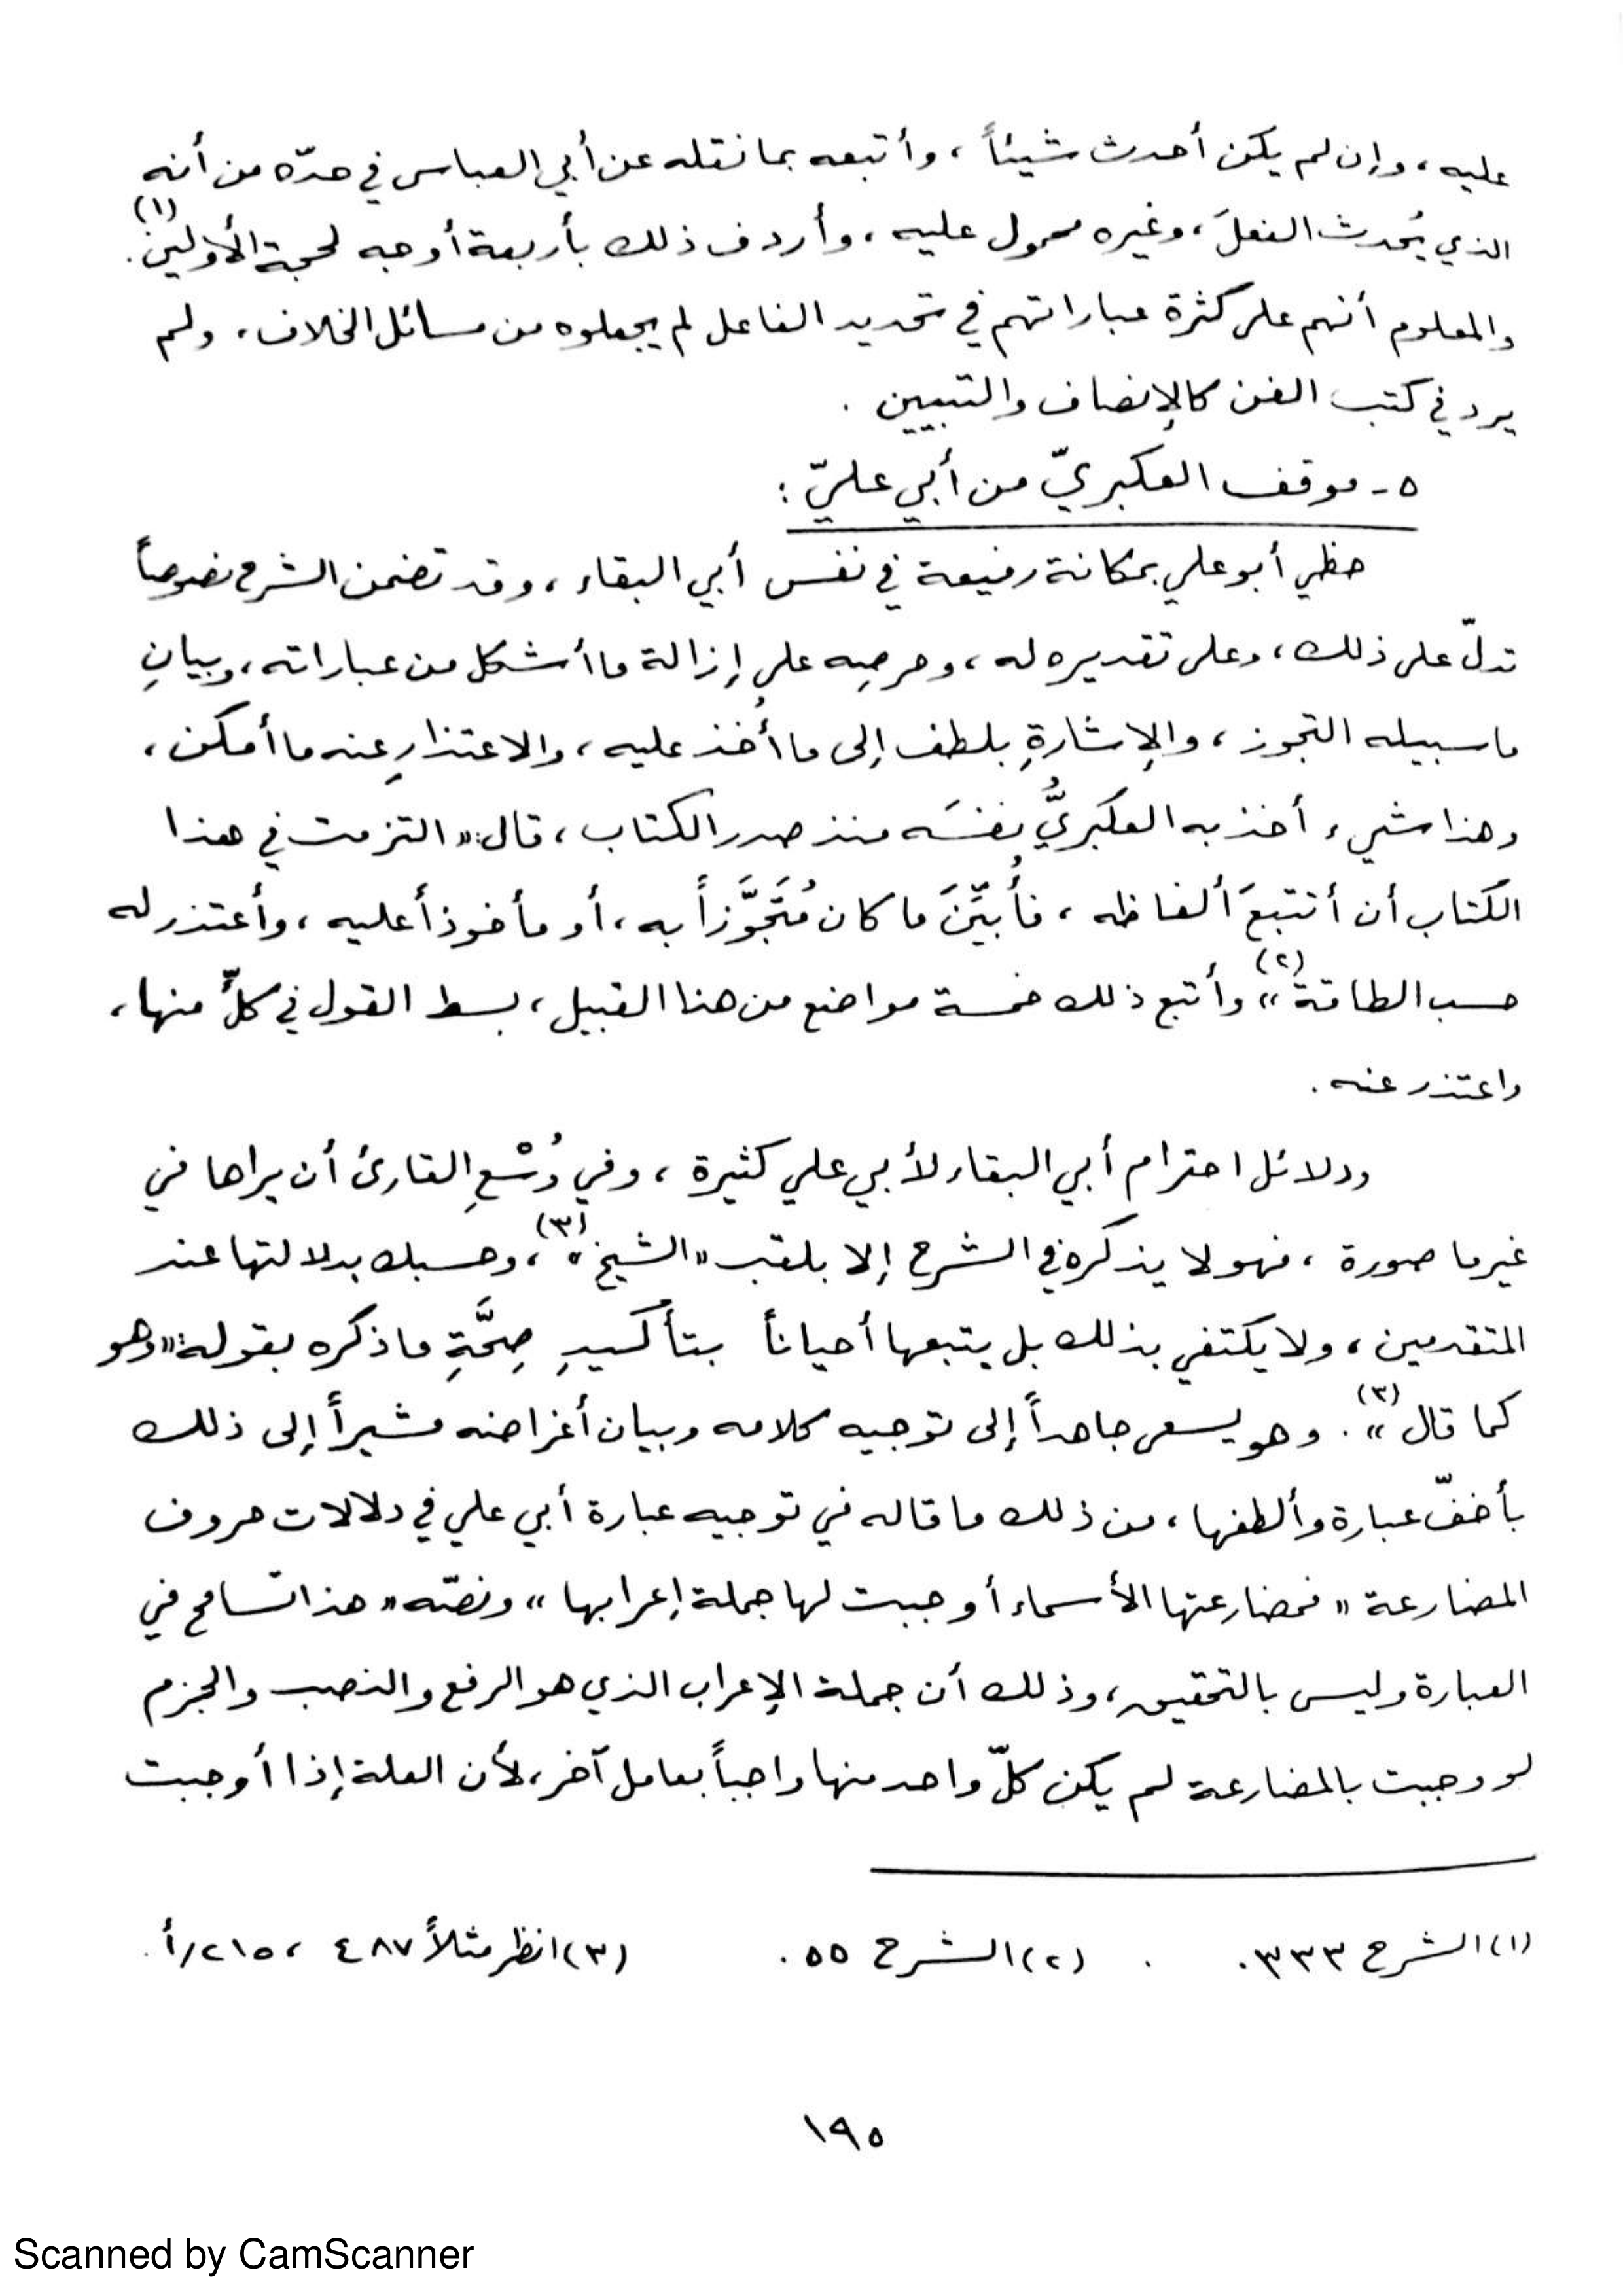 عليه، وإن لم يكن أحدث شيئاً، وأتبعه بما نقله عن أبي العباس في حدّه من أنه
الذي يُحدث الفعلَ، وغيره محمول عليه، وأردف ذلك بأربعة أوجه لحجة الأولين(١).
والمعلوم أنهم على كثرة عباراتهم في تحديد الفاعل لم يجعلوه من مسائل الخلاف، ولم
يرد في كتب الفن كالإنصاف والتبيين.
٥- موقف العكبريّ من أبي عليّ:
حظي أبو علي بمكانة رفيعة في نفس أبي البقاء، وقد تضمن الشرح نصوصاً
تدلّ على ذلك، وعلى تقديره له، وحرصِه على إزالة ما أشكل من عباراته، وبيانِ
ما سبيله التجوز، والإشارةِ بلطف إلى ما أُخذ عليه، والاعتذارِ عنه ما أمكن،
وهذا شيء أخذ به العكبريُّ نفسَه منذ صدر الكتاب، قال: «التزمت في هذا
الكتاب أن أتتبعَ ألفاظه، فأُبيِّنَ ما كان مُتَجَوَّزاً به، أو مأخوذاً عليه، وأعتذر له
حسب الطاقة(٢)» وأتبع ذلك خمسة مواضع من هذا القبيل، بسط القول في كلٍّ منها،
واعتذر عنه.
ودلائل احترام أبي البقاء لأبي علي كثيرة، وفي وُسْعِ القارئ أن يراها في
غير ما صورة، فهو لا يذكره في الشرح إلا بلقب «الشيخ»(٣)، وحسبك بدلالتها عند
المتقدمين، ولا يكتفي بذلك بل يتبعها أحياناً بتأكيدِ صِحَّةِ ما ذكره بقوله: «وهو
كما قال(٣)». وهو يسعى جاهداً إلى توجيه كلامه وبيان أغراضه مشيراً إلى ذلك
بأخفّ عبارة وألطفها، من ذلك ما قاله في توجيه عبارة أبي علي في دلالات حروف
المضارعة «فمضارعتها الأسماء أوجبت لها جملة إعرابها» ونصّه «هذا تسامح في
العبارة وليس بالتحقيق، وذلك أن جملة الإعراب الذي هو الرفع والنصب والجزم
لو وجبت بالمضارعة لم يكن كلّ واحد منها واجباً بعامل آخر، لأن العلة إذا أوجبت
(١) الشرح ٣٣٣. (٢) الشرح ٥٥. (٣) انظر مثلاً ٤٨٧، ٢١٥/أ.
١٩٥
Scanned by CamScanner